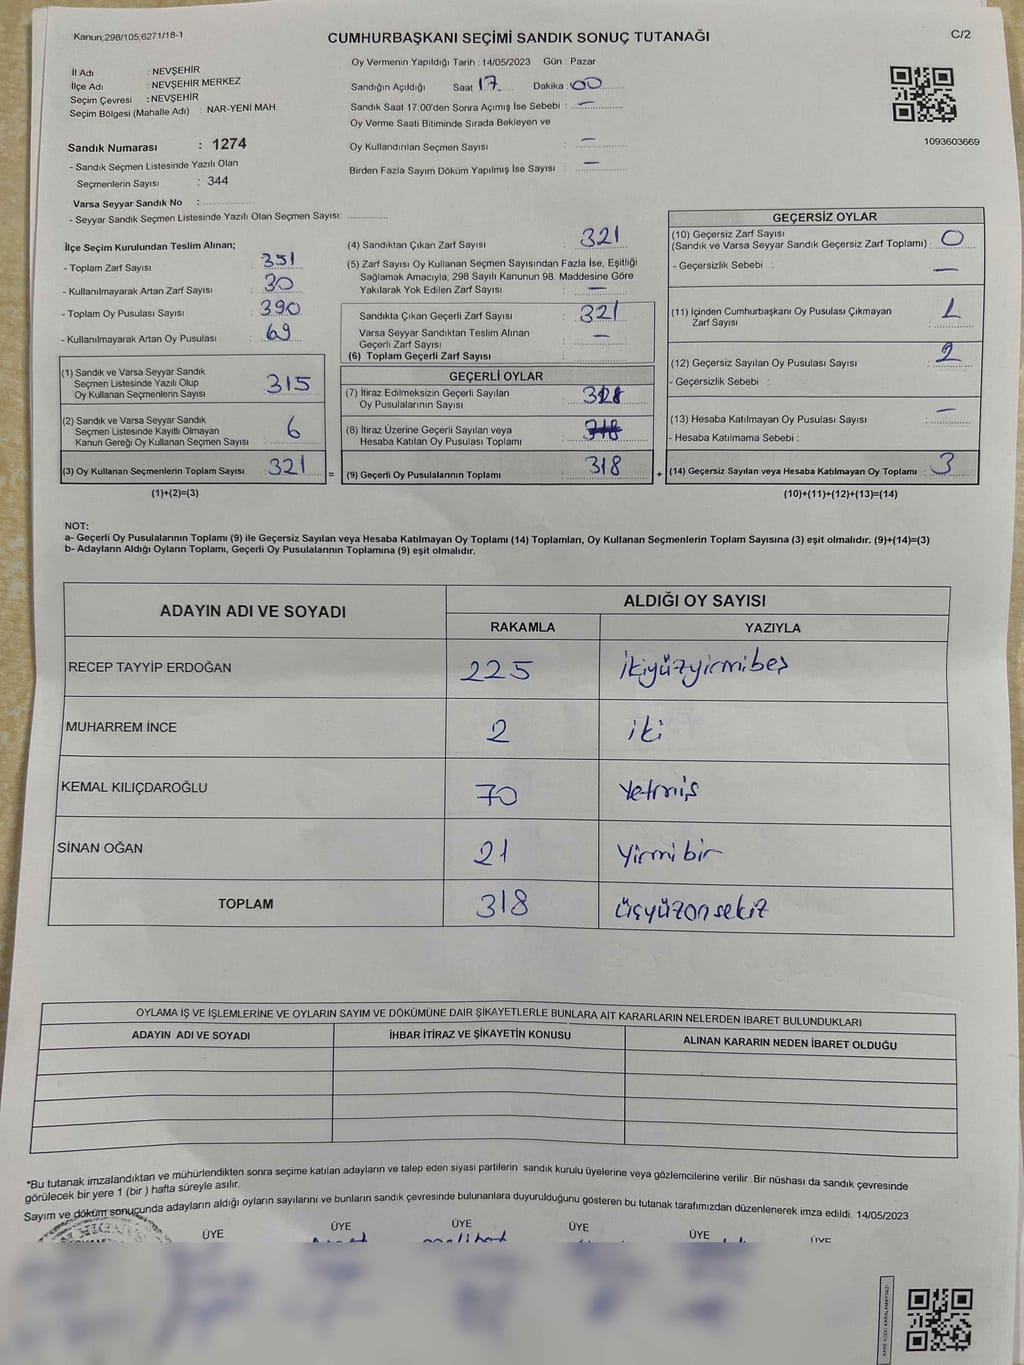 Kanun;298/105;6271/18-1
CUMHURBAŞKANI SEÇİMİ SANDIK SONUÇ TUTANAĞI
C/2
İl Adı : NEVŞEHİR
İlçe Adı : NEVŞEHİR MERKEZ
Seçim Çevresi : NEVŞEHİR
Seçim Bölgesi (Mahalle Adı) : NAR-YENİ MAH.
Oy Vermenin Yapıldığı Tarih : 14/05/2023 Gün : Pazar
Sandığın Açıldığı Saat 17 Dakika : 00
Sandık Saat 17:00'den Sonra Açımış İse Sebebi : —
Oy Verme Saati Bitiminde Sırada Bekleyen ve
Oy Kullandırılan Seçmen Sayısı : —
Birden Fazla Sayım Döküm Yapılmış İse Sayısı : —
1093603669
Sandık Numarası : 1274
- Sandık Seçmen Listesinde Yazılı Olan
Seçmenlerin Sayısı : 344
Varsa Seyyar Sandık No :
- Seyyar Sandık Seçmen Listesinde Yazılı Olan Seçmen Sayısı:
İlçe Seçim Kurulundan Teslim Alınan;
- Toplam Zarf Sayısı : 351
- Kullanılmayarak Artan Zarf Sayısı : 30
- Toplam Oy Pusulası Sayısı : 390
- Kullanılmayarak Artan Oy Pusulası : 69
(1) Sandık ve Varsa Seyyar Sandık
Seçmen Listesinde Yazılı Olup
Oy Kullanan Seçmenlerin Sayısı : 315
(2) Sandık ve Varsa Seyyar Sandık
Seçmen Listesinde Kayıtlı Olmayan
Kanun Gereği Oy Kullanan Seçmen Sayısı : 6
(3) Oy Kullanan Seçmenlerin Toplam Sayısı : 321 =
(1)+(2)=(3)
(4) Sandıktan Çıkan Zarf Sayısı : 321
(5) Zarf Sayısı Oy Kullanan Seçmen Sayısından Fazla İse, Eşitliği
Sağlamak Amacıyla, 298 Sayılı Kanunun 98. Maddesine Göre
Yakılarak Yok Edilen Zarf Sayısı : —
Sandıkta Çıkan Geçerli Zarf Sayısı : 321
Varsa Seyyar Sandıktan Teslim Alınan
Geçerli Zarf Sayısı : —
(6) Toplam Geçerli Zarf Sayısı :
GEÇERLİ OYLAR
(7) İtiraz Edilmeksizin Geçerli Sayılan
Oy Pusulalarının Sayısı :
(8) İtiraz Üzerine Geçerli Sayılan veya
Hesaba Katılan Oy Pusulası Toplamı :
(9) Geçerli Oy Pusulalarının Toplamı : 318 +
GEÇERSİZ OYLAR
(10) Geçersiz Zarf Sayısı
(Sandık ve Varsa Seyyar Sandık Geçersiz Zarf Toplamı) : 0
- Geçersizlik Sebebi : —
(11) İçinden Cumhurbaşkanı Oy Pusulası Çıkmayan
Zarf Sayısı : 1
(12) Geçersiz Sayılan Oy Pusulası Sayısı : 2
- Geçersizlik Sebebi :
(13) Hesaba Katılmayan Oy Pusulası Sayısı : —
- Hesaba Katılmama Sebebi :
(14) Geçersiz Sayılan veya Hesaba Katılmayan Oy Toplamı : 3
(10)+(11)+(12)+(13)=(14)
NOT:
a- Geçerli Oy Pusulalarının Toplamı (9) ile Geçersiz Sayılan veya Hesaba Katılmayan Oy Toplamı (14) Toplamları, Oy Kullanan Seçmenlerin Toplam Sayısına (3) eşit olmalıdır. (9)+(14)=(3)
b- Adayların Aldığı Oyların Toplamı, Geçerli Oy Pusulalarının Toplamına (9) eşit olmalıdır.
ADAYIN ADI VE SOYADI
ALDIĞI OY SAYISI
RAKAMLA YAZIYLA
RECEP TAYYİP ERDOĞAN 225 ikiyüzyirmibeş
MUHARREM İNCE 2 iki
KEMAL KILIÇDAROĞLU 70 Yetmiş
SİNAN OĞAN 21 Yirmibir
TOPLAM 318 üçyüzonsekiz
OYLAMA İŞ VE İŞLEMLERİNE VE OYLARIN SAYIM VE DÖKÜMÜNE DAİR ŞİKAYETLERLE BUNLARA AİT KARARLARIN NELERDEN İBARET BULUNDUKLARI
ADAYIN ADI VE SOYADI İHBAR İTİRAZ VE ŞİKAYETİN KONUSU ALINAN KARARIN NEDEN İBARET OLDUĞU
*Bu tutanak imzalandıktan ve mühürlendikten sonra seçime katılan adayların ve talep eden siyasi partilerin sandık kurulu üyelerine veya gözlemcilerine verilir .Bir nüshası da sandık çevresinde
görülecek bir yere 1 (bir ) hafta süreyle asılır.
Sayım ve döküm sonucunda adayların aldığı oyların sayılarını ve bunların sandık çevresinde bulunanlara duyurulduğunu gösteren bu tutanak tarafımızdan düzenlenerek imza edildi. 14/05/2023
ÜYE ÜYE ÜYE ÜYE ÜYE ÜYE